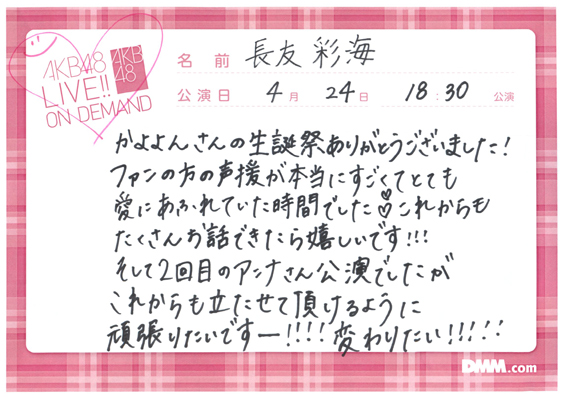 AKB48
LIVE!!
ON DEMAND
AKB
48
名前 長友彩海
公演日 4月 24日 18:30 公演
かよよんさんの生誕祭ありがとうございました!
ファンの方の声援が本当にすごくてとても
愛にあふれていた時間でした これからも
たくさんお話できたら嬉しいです!!!
そして2回目のアンナさん公演でしたが
これからも立たせて頂けるように
頑張りたいですー!!!! 変わりたい!!!!!
DMM.com